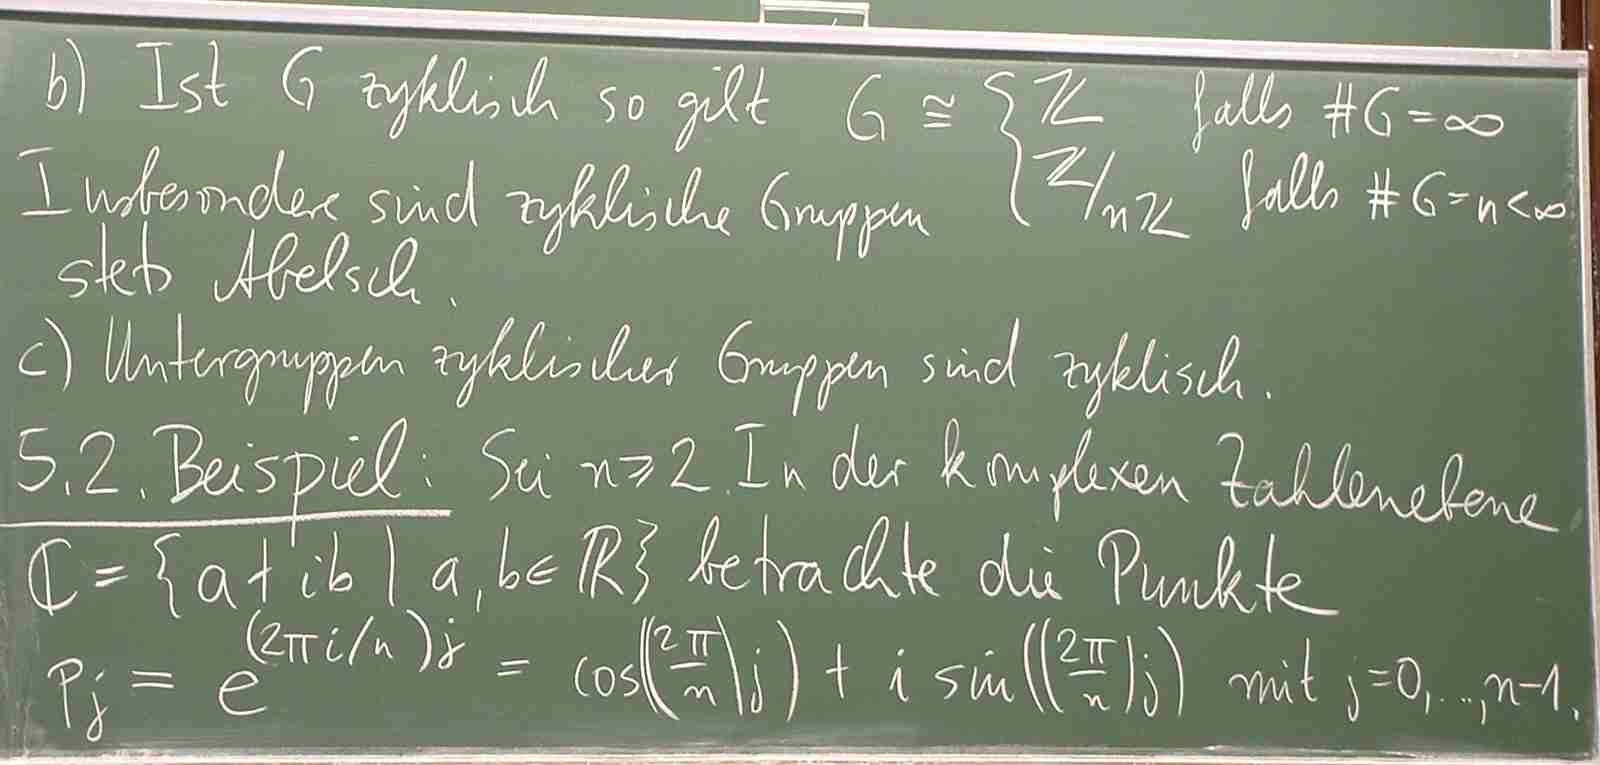 b) Ist G zyklisch so gilt G ≅ { ℤ falls #G = ∞
Insbesondere sind zyklische Gruppen { ℤ/nℤ falls #G = n < ∞
stets Abelsch.
c) Untergruppen zyklischer Gruppen sind zyklisch.
5.2. Beispiel: Sei n ≥ 2. In der komplexen Zahlenebene
ℂ = {a + ib | a, b ∈ ℝ} betrachte die Punkte
p_j = e^{(2πi/n)j} = cos((2π/n)j) + i sin((2π/n)j) mit j=0,...,n-1.